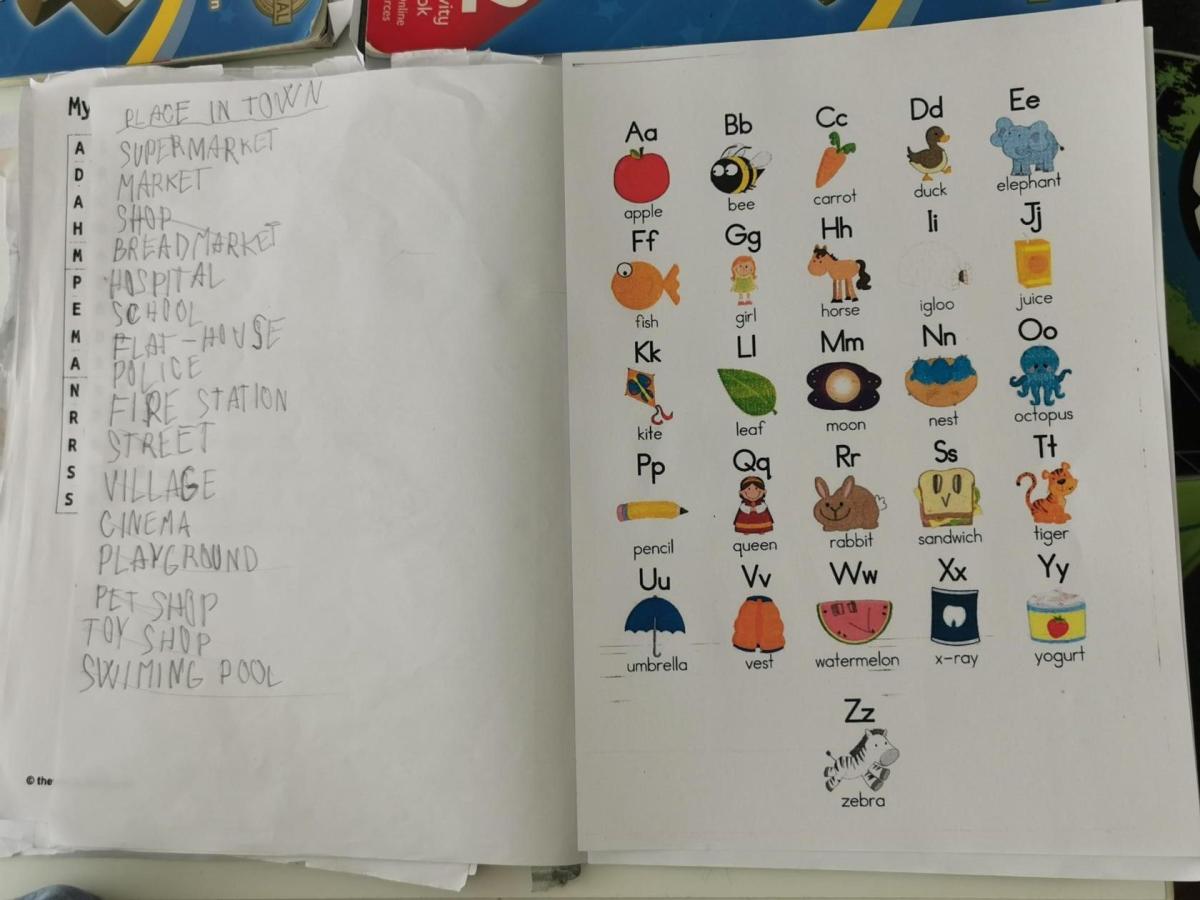 vity
ok
Online
rces
My
PLACE IN TOWN
SUPERMARKET
MARKET
SHOP
BREADMARKET
HOSPITAL
SCHOOL
FLAT-HOUSE
POLICE
FIRE STATION
STREET
VILLAGE
CINEMA
PLAYGROUND
PET SHOP
TOY SHOP
SWIMING POOL
A
D
A
H
M
P
E
M
A
N
R
R
S
S
© the
Aa Bb Cc Dd Ee
apple bee carrot duck elephant
Ff Gg Hh Ii Jj
fish girl horse igloo juice
Kk Ll Mm Nn Oo
kite leaf moon nest octopus
Pp Qq Rr Ss Tt
pencil queen rabbit sandwich tiger
Uu Vv Ww Xx Yy
umbrella vest watermelon x-ray yogurt
Zz
zebra